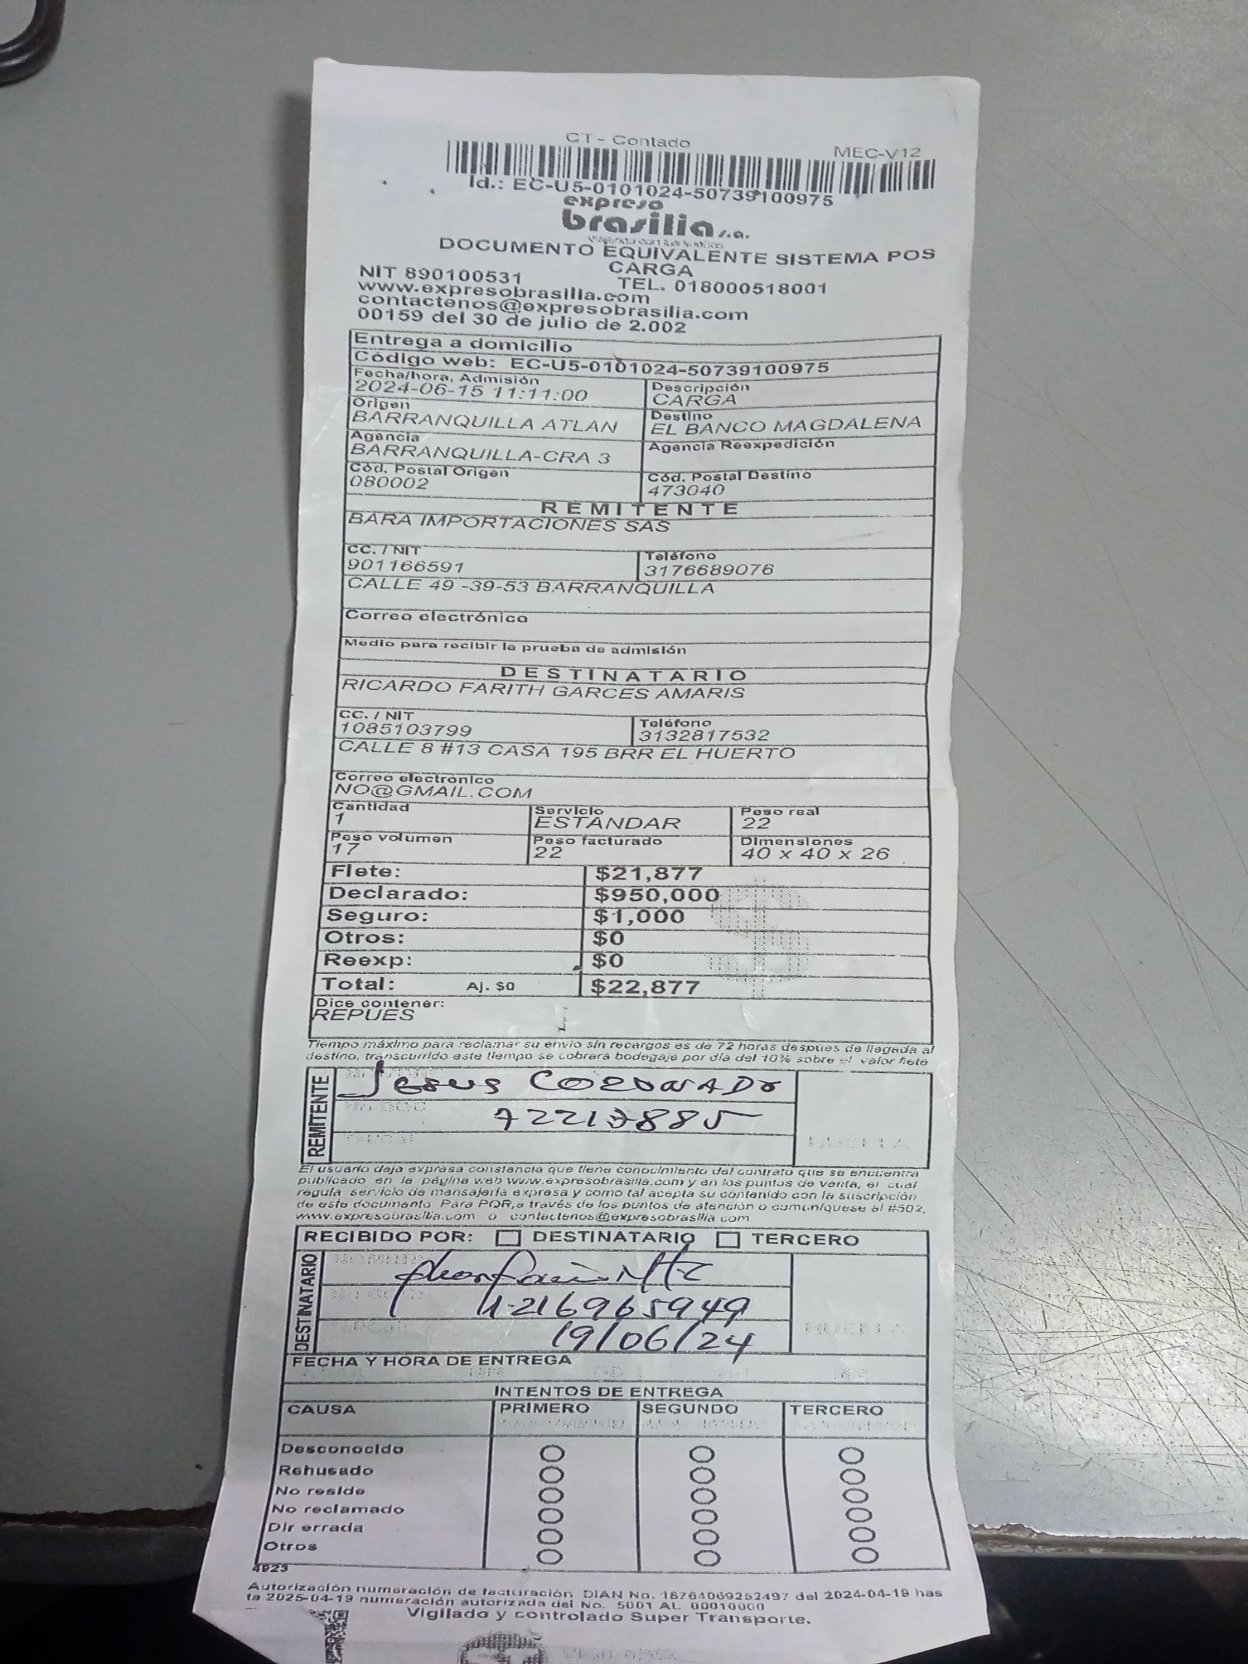 CT - Contado
MEC-V12
Id.: EC-U5-0101024-50739100975
expreso
brasilia s.a.
DOCUMENTO EQUIVALENTE SISTEMA POS
CARGA
NIT 890100531 TEL. 018000518001
www.expresobrasilia.com
contactenos@expresobrasilia.com
00159 del 30 de julio de 2.002
Entrega a domicilio
Código web: EC-U5-0101024-50739100975
Fecha/hora, Admisión Descripción
2024-06-15 11:11:00 CARGA
Origen Destino
BARRANQUILLA ATLAN EL BANCO MAGDALENA
Agencia Agencia Reexpedición
BARRANQUILLA-CRA 3
Cód. Postal Origen Cód. Postal Destino
080002 473040
REMITENTE
BARA IMPORTACIONES SAS
CC. / NIT Teléfono
901166591 3176689076
CALLE 49 -39-53 BARRANQUILLA
Correo electrónico
Medio para recibir la prueba de admisión
DESTINATARIO
RICARDO FARITH GARCES AMARIS
CC. / NIT Teléfono
1085103799 3132817532
CALLE 8 #13 CASA 195 BRR EL HUERTO
Correo electrónico
NO@GMAIL.COM
Cantidad Servicio Peso real
1 ESTANDAR 22
Peso volumen Peso facturado Dimensiones
17 22 40 x 40 x 26
Flete: $21,877
Declarado: $950,000
Seguro: $1,000
Otros: $0
Reexp: $0
Total: Aj. $0 $22,877
Dice contener:
REPUES
Tiempo máximo para reclamar su envío sin recargos es de 72 horas despues de llegada al
destino, transcurrido este tiempo se cobrará bodegaje por día del 10% sobre el valor flete
REMITENTE
Jesus CORONADO
72217885
HUELLA
El usuario deja expresa constancia que tiene conocimiento del contrato que se encuentra
publicado en la página web www.expresobrasilia.com y en los puntos de venta, el cual
regula servicio de mensajería expresa y como tal acepta su contenido con la suscripción
de este documento. Para PQR, a través de los puntos de atención o comuníquese al #502,
www.expresobrasilia.com o contactenos@expresobrasilia.com
RECIBIDO POR: DESTINATARIO TERCERO
DESTINATARIO
1216965949
19/06/24
HUELLA
FECHA Y HORA DE ENTREGA
INTENTOS DE ENTREGA
CAUSA PRIMERO SEGUNDO TERCERO
Desconocido
Rehusado
No reside
No reclamado
Dir errada
Otros
4923
Autorización numeración de facturación DIAN No. 18764069252497 del 2024-04-19 has
ta 2025-04-19 numeración autorizada del No. 5001 AL 00010000
Vigilado y controlado Super Transporte.